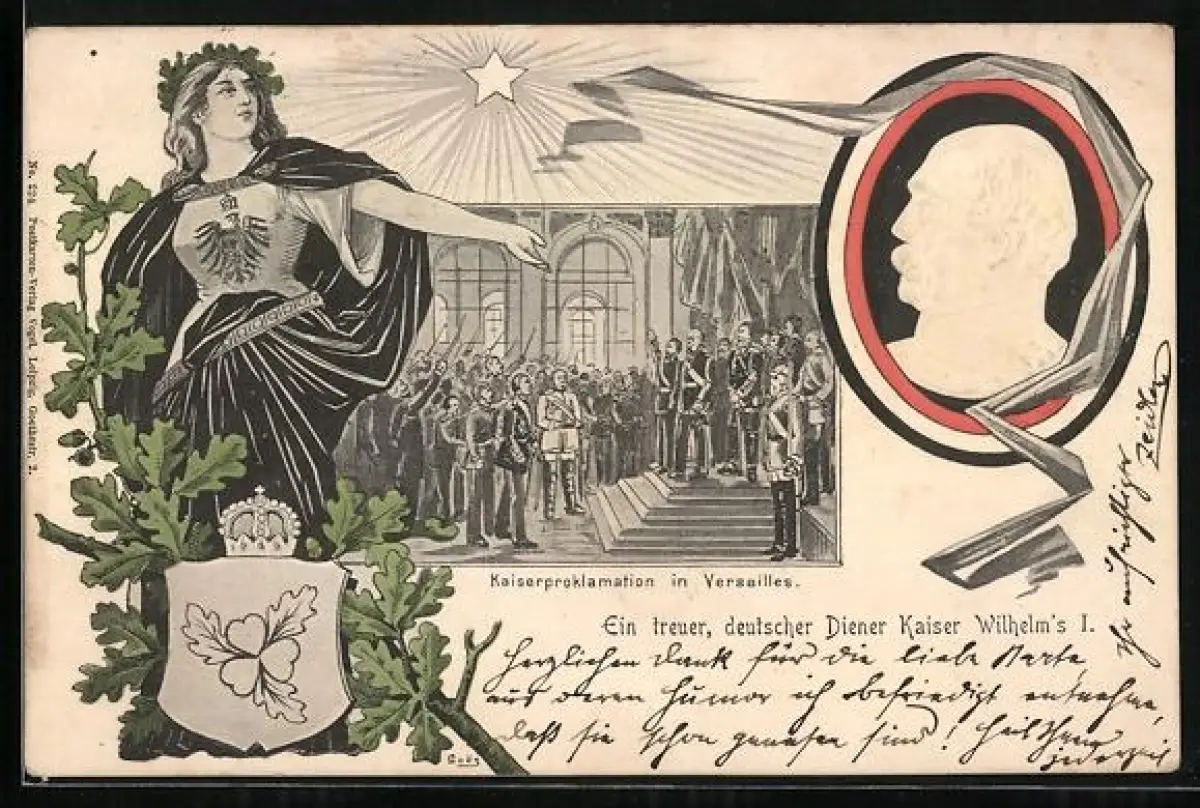 No. 224 Postkarten-Verlag Vogel, Leipzig, Goethestr. 2.
Kaiserproklamation in Versailles.
Ein treuer, deutscher Diener Kaiser Wilhelm's I.
Herzlichen Dank für die liebe Karte,
aus deren Humor ich befriedigt entnehme,
daß sie schon genesen sind! Heil Ihnen
jederzeit
Ihr aufrichtiger